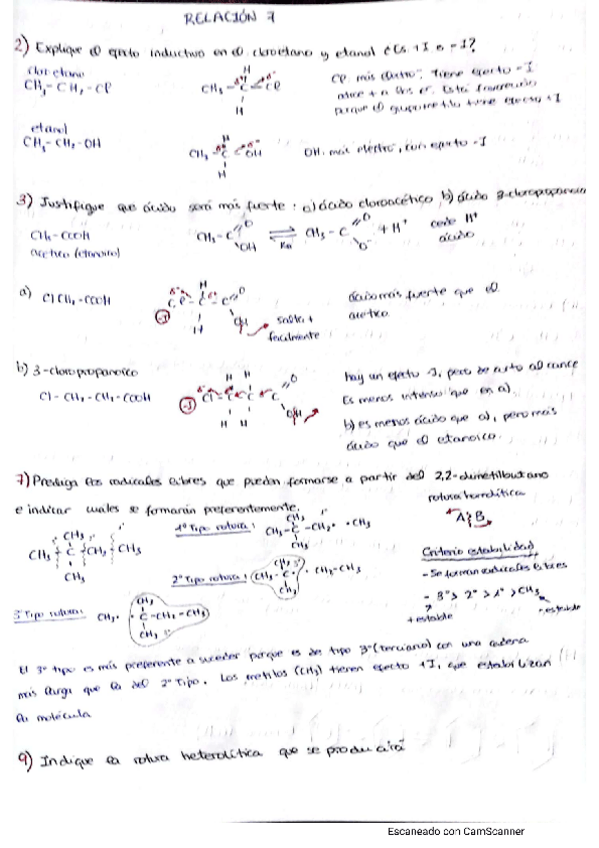 RELACIÓN 7
2) Explique el efecto inductivo en el cloroetano y etanol ¿Es +I o -I?
cloroetano
CH3-CH2-Cl
CH3-C-Cl
H
H
Cl más electro-, tiene efecto -I
porque el grupo metilo tiene efecto +I
etanol
CH3-CH2-OH
CH3-C-OH
H
H
OH, más electro, con efecto -I
3) Justifique que ácido será más fuerte: a) ácido cloroacético, b) ácido 3-cloropropanoico
CH3-COOH
acético (etanoico)
CH3-C O OH ⇌ CH3-C O O- + H+
Ka
cede H+
ácido
a) ClCH2-COOH
Cl-C-C O OH
H
H
-I
salta +
facilmente
ácido más fuerte que el
acético
b) 3-cloropropanoico
Cl-CH2-CH2-COOH
Cl-C-C-C O OH
H H
H H
-I
hay un efecto -I, pero de corto alcance
Es menos intenso que en a).
b) es menos ácido que a), pero más
ácido que el etanoico.
7) Prediga los radicales libres que puedan formarse a partir del 2,2-dimetilbutano
e indicar cuales se formarán preferentemente.
rotura homolítica
A B
CH3
CH3 C CH2 CH3
CH3
1º Tipo rotura:
CH3
CH3-C-CH2· ·CH3
CH3
2º Tipo rotura:
CH3
CH3-C·
CH3
·CH2-CH3
3º Tipo rotura:
CH3·
CH3
·C-CH2-CH3
CH3
Criterio estabilidad
- Se forman radicales libres
- 3º > 2º > 1º > CH3
+ estable
- estable
El 3º tipo es más preferente a suceder porque es de tipo 3º (terciario) con una cadena
más larga que la del 2º Tipo. Los metilos (CH3) tienen efecto +I, que estabilizan
la molécula
9) Indique la rotura heterolítica que se producirá
Escaneado con CamScanner